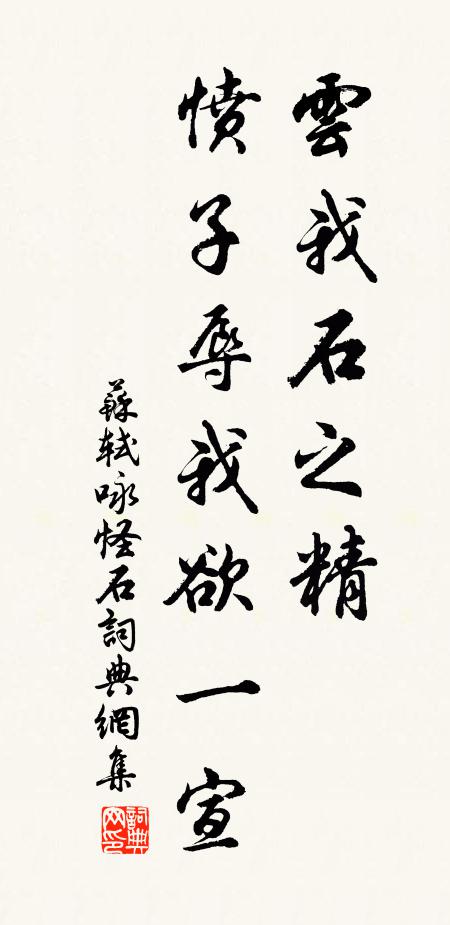 雲我石之精
憤子辱我欲一宣
蘇軾咏怪石詞典網集
詞典
网印